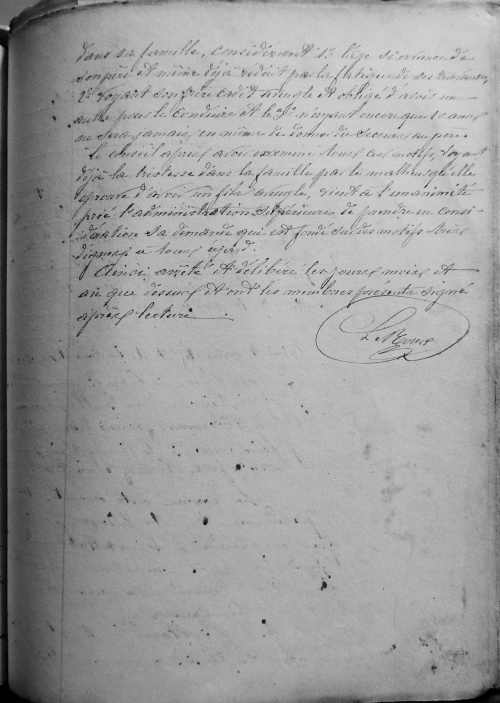 dans sa famille, considérant 1° l'âge si avancé de
son père et même déjà réduit par la fatigue de ses travaux,
2° voyant son frère cadet aveugle et obligé d'avoir un
autre pour le conduire et le n'ayant encore que 10 ans
ne sera jamais en même de donner du secours au père
Le conseil après avoir examiné tous ces motifs, voyant
déjà la tristesse dans la famille par le malheur qu'elle
éprouve d'avoir un fils aveugle, vient à l'unanimité
prié l'administration supérieure de prendre en consi-
dération sa demande qui est fondé sur des motifs bien
dignes a tous egard.
Ainsi arrêté et délibéré les jours mois et
an que dessus et ont les membres présents signé
après lecture.
Le Roux